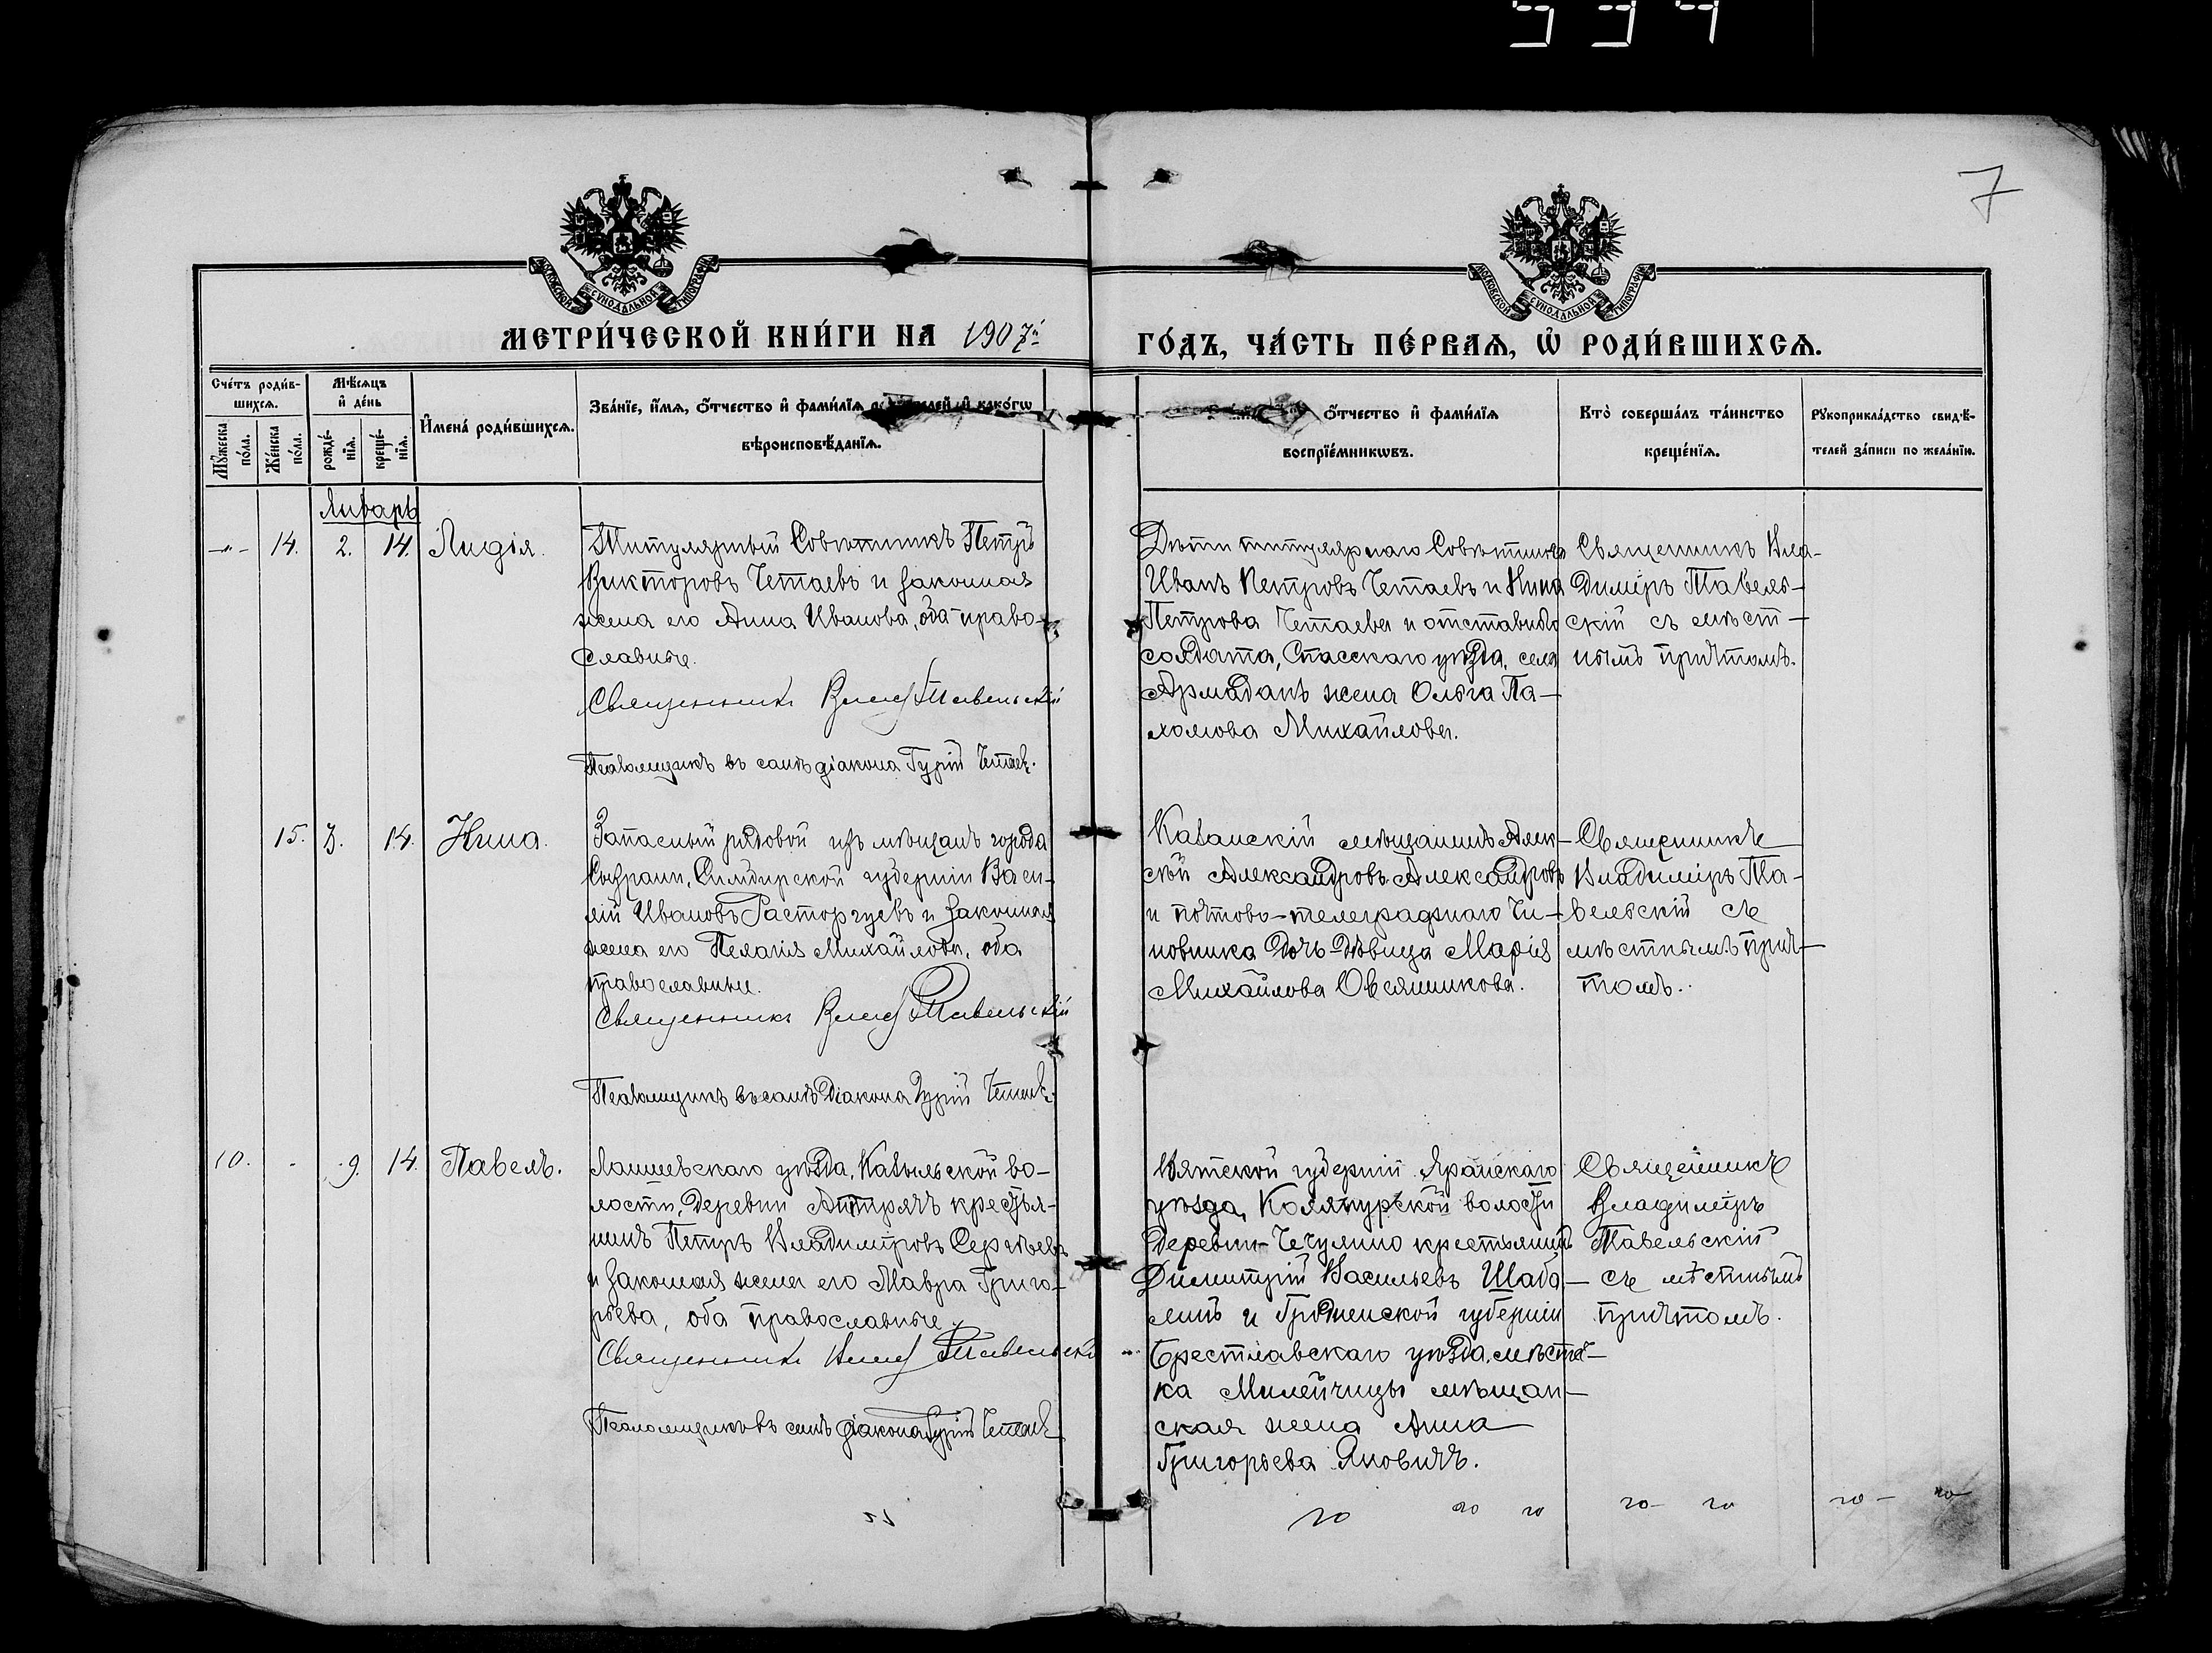 934
7
МОСКОВСКОЙ СѴНОДАЛЬНОЙ ТИПОГРАФІИ
МОСКОВСКОЙ СѴНОДАЛЬНОЙ ТИПОГРАФІИ
МЕТРИ́ЧЕСКОЙ КНИ́ГИ НА 1907й
ГО́ДЪ, ЧА́СТЬ ПЕ́РВАѦ, Ѡ҆ РОДИ́ВШИХСѦ.
Сче́тъ роди́в-
шихсѧ.
Мꙋ́жеска по́ла.
Же́нска по́ла.
Мѣ́сѧцъ
и҆ де́нь
рожде́-
нїѧ.
креще́-
нїѧ.
И҆мена́ роди́вшихсѧ.
Зва́нїе, и҆́мѧ, ѻ҆́тчество и҆ фами́лїѧ и҆ како́гѡ
вѣроисповѣ́данїѧ.
ѻ҆́тчество и҆ фами́лїѧ
воспрїе́мникѡвъ.
Кто̀ соверша́лъ та́инство
креще́нїѧ.
Рꙋкоприкла́дство свидѣ́-
телей за́писи по жела́нїю.
Январь
-„- 14. 2. 14. Лидія.
Титулярный Совѣтникъ Петръ
Викторовъ Четаевъ и законная
жена его Анна Иванова, оба право-
славные.
Священникъ Влад Тавельскій
Псаломщикъ въ санѣ діакона Гурій Четаевъ.
Дѣти титулярнаго Совѣтника
Иванъ Петровъ Четаевъ и Нина
Петрова Четаева и отставнаго
солдата, Спасскаго уѣзда, села
жена Ольга Па-
хомова Михайлова.
Священникъ Вла-
диміръ Тавель-
скій съ мѣст-
нымъ причтомъ.
15. 3. 14. Нина.
Запасный рядовой изъ мѣщанъ города
Сызрани, Симбирской губерніи Васи-
лій Ивановъ Расторгуевъ и законная
жена его Пелагія Михайлова, оба
православные.
Священникъ Влад Тавельскій
Псаломщикъ въ санѣ Діакона Гурій Четаевъ.
Казанскій мѣщанинъ Алек-
сѣй Александровъ Александровъ
и почтово-телеграфнаго Чи-
новника Дочь-Дѣвица Марія
Михайлова Овсянникова.
Священникъ
Владиміръ Та-
вельскій съ
мѣстнымъ прич-
томъ.
10. - 9. 14. Павелъ.
Лаишевскаго уѣзда, Казыльской во-
лости, Деревни крестья-
нинъ Петръ Владиміровъ Сергѣевъ
и законная жена его Мавра Григо-
рьева, оба православные.
Священникъ Влад Тавельскій
Псаломщикъ въ санѣ діакона Гурій Четаевъ
Вятской губерніи Яранскаго
уѣзда, волости
Деревни крестьянинъ
Димитрій Васильевъ Шаба-
линъ и Гродненской губерніи
уѣзда, мѣстеч-
ка Милейчицы мѣщан-
ская жена Анна
Григорьева Яновичъ.
Священникъ
Владиміръ
Тавельскій
съ мѣстнымъ
причтомъ.